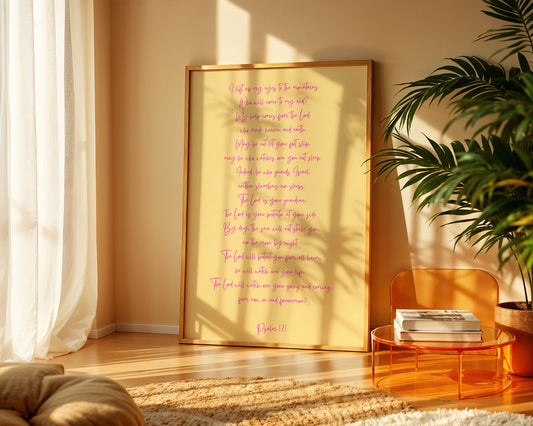 I lift up my eyes to the mountains.
Who will come to my aid?
My help comes from the Lord
who made heaven and earth.
May he not let your foot slip,
may he who watches over you not sleep.
Indeed, he who guards Israel
neither slumbers nor sleeps.
The Lord is your guardian,
the Lord is your protector at your side.
By day, the sun will not strike you,
nor the moon by night.
The Lord will protect you from all harm;
he will watch over your life.
The Lord will watch over your going and coming,
from now on and forevermore!
Psalm 121